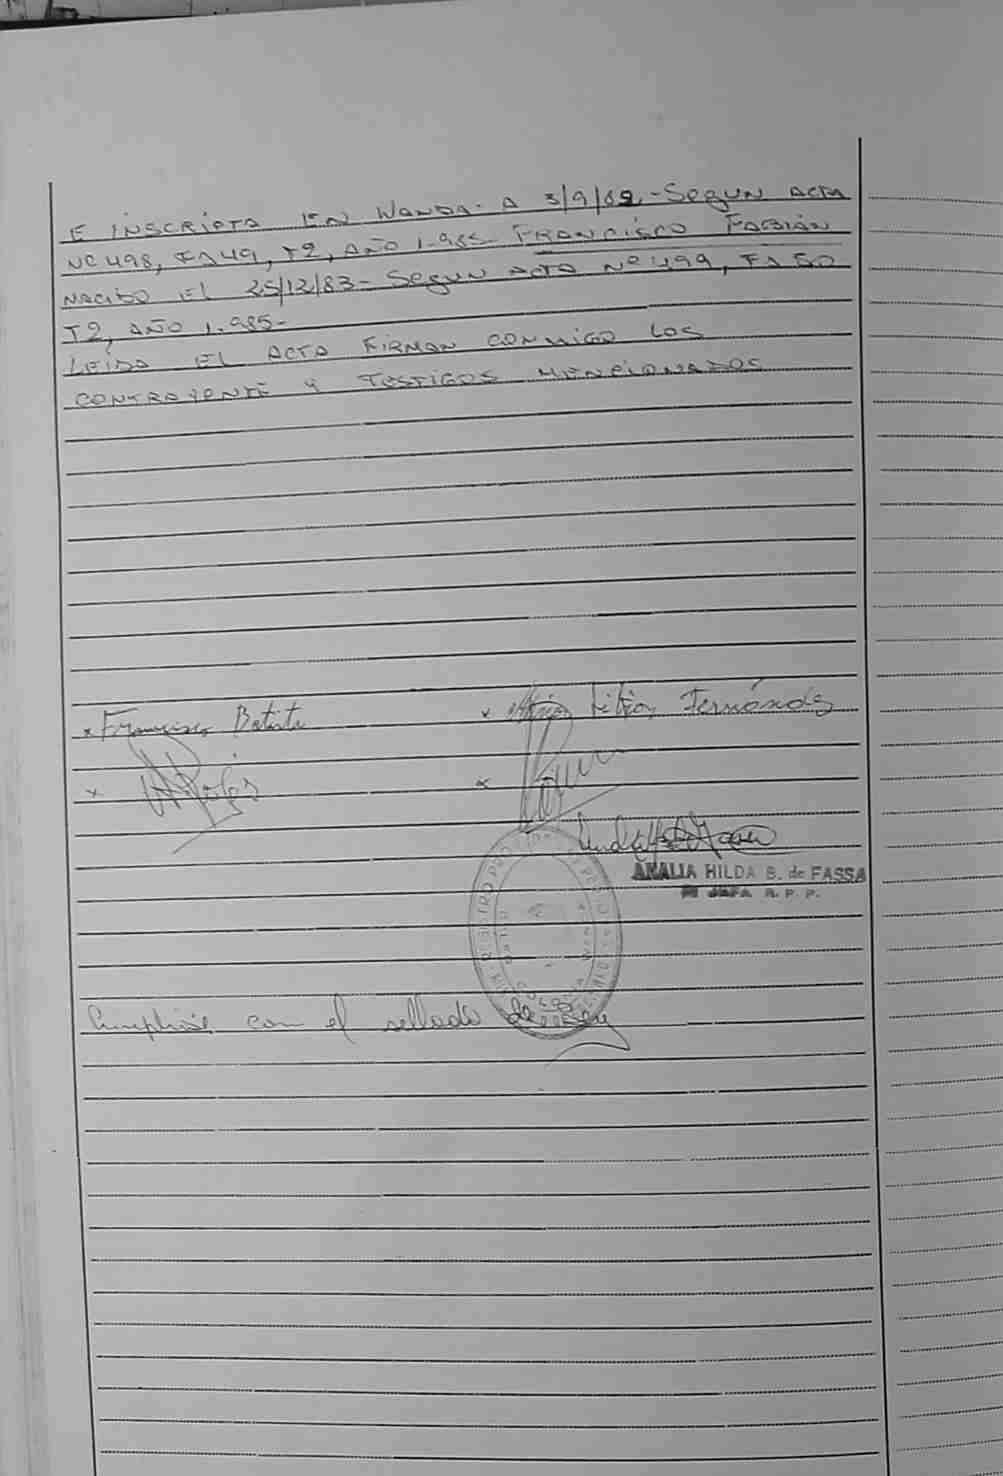 E INSCRIPTA EN WANDA. A 3/9/82.- SEGUN ACTA
Nº 498, Fª 49, T2, AÑO 1.985- FRANCISCO FABIÁN
NACIDO EL 25/12/83- SEGUN ACTA Nº 499, Fª 50
T2, AÑO 1.985-
LEÍDA EL ACTA FIRMAN CONMIGO LOS
CONTRAYENTE Y TESTIGOS MENCIONADOS
x Francisco Batista
Lilian Fernández
x
x
ANALIA HILDA B. de FASSA
JEFA R. P. P.
REGISTRO PRO
WANDA
Cumplióse con el sellado de Ley